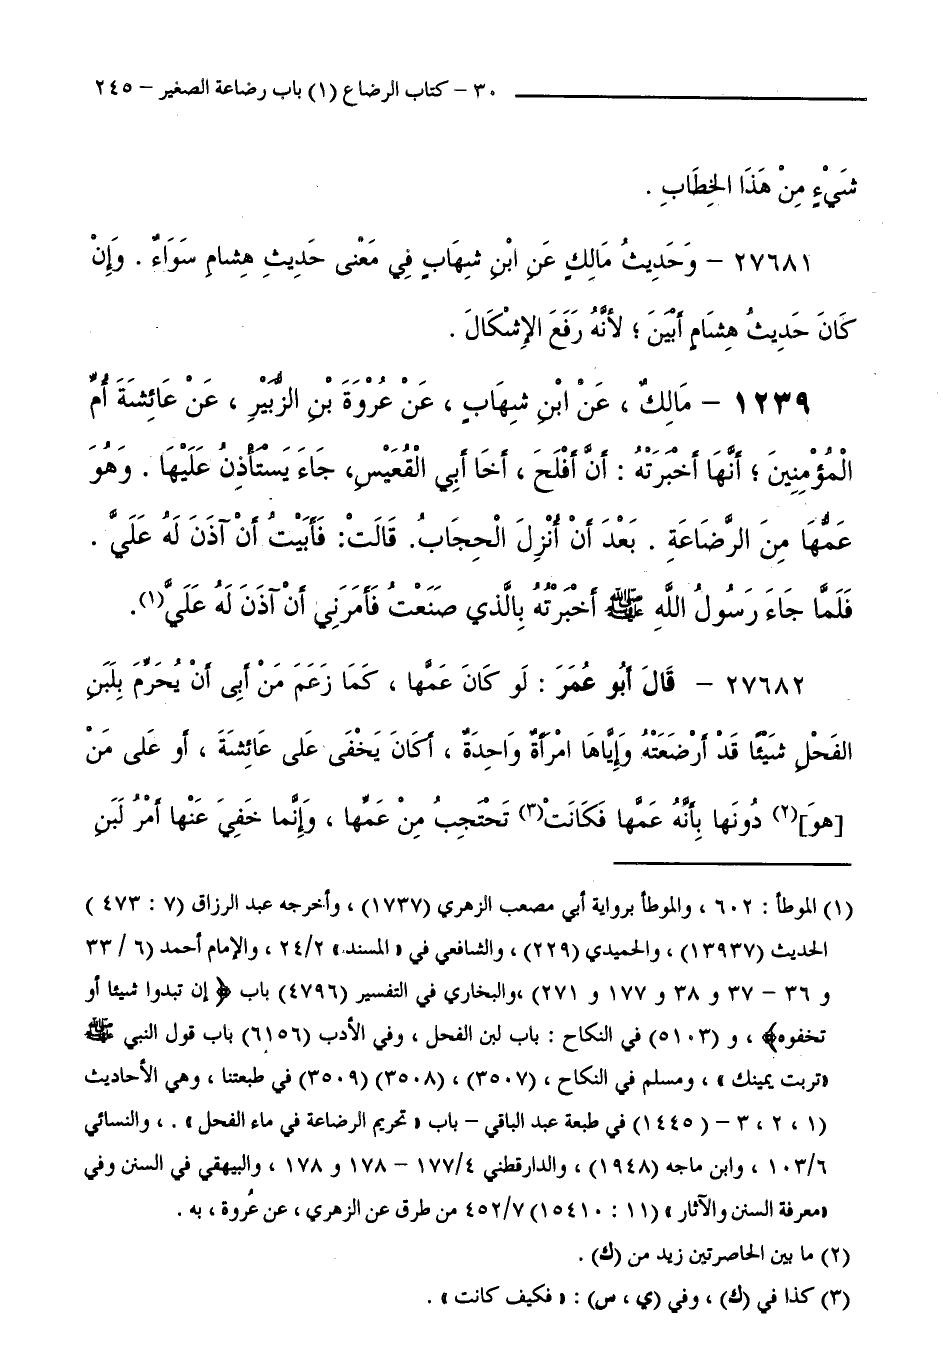 ٣٠ – كتاب الرضاع (١) باب رضاعة الصغير – ٢٤٥
شَيْءٍ مِنْ هَذَا الخِطَابِ .
٢٧٦٨١ – وَحَدِيثُ مَالِكٍ عَنِ ابْنِ شِهَابٍ فِي مَعْنى حَدِيثِ هِشامٍ سَوَاءٌ . وَإِنْ
كَانَ حَدِيثُ هِشَامٍ أَبْيَنَ ؛ لأَنَّهُ رَفَعَ الإِشْكَالَ .
١٢٣٩ – مَالِكٌ ، عَنْ ابْنِ شِهَابٍ ، عَنْ عُرْوَةَ بْنِ الزُّبَيْرِ ، عَنْ عَائِشَةَ أُمِّ
الْمُؤْمِنِينَ ؛ أَنَّهَا أَخْبَرَتْهُ : أَنَّ أَفْلَحَ ، أَخَا أَبِي الْقُعَيْسِ، جَاءَ يَسْتَأْذِنُ عَلَيْهَا . وَهُوَ
عَمُّهَا مِنَ الرَّضَاعَةِ . بَعْدَ أَنْ أُنْزِلَ الْحِجَابُ. قَالَتْ: فَأَبَيْتُ أَنْ آذَنَ لَهُ عَلَيَّ .
فَلَمَّا جَاءَ رَسُولُ اللَّهِ ﷺ أَخْبَرْتُهُ بِالَّذي صَنَعْتُ فَأَمَرَنِي أَنْ آذَنَ لَهُ عَلَيَّ(١).
٢٧٦٨٢ – قَالَ أَبُو عُمَرَ : لَو كَانَ عَمَّها ، كَمَا زَعَمَ مَنْ أَبى أَنْ يُحَرِّمَ بِلَبَنِ
الفَحْلِ شَيْئًا قَدْ أَرْضَعَتْهُ وَإِيَّاهَا امْرَأَةٌ وَاحِدَةٌ ، أَكَانَ يَخْفَى عَلى عَائِشَةَ ، أَو عَلى مَنْ
[هوَ](٢) دُونَها بِأَنَّهُ عَمَّها فَكَانَتْ(٣) تَحْتَجِبُ مِنْ عَمِّها ، وَإِنَّما خَفِيَ عَنْها أَمْرُ لَبَنِ
(١) الموطأ : ٦٠٢ ، والموطأ برواية أبي مصعب الزهري (١٧٣٧) ، وأخرجه عبد الرزاق (٧ : ٤٧٣ )
الحديث (١٣٩٣٧) ، والحميدي (٢٢٩) ، والشافعي في « المسند» ٢٤/٢ ، والإمام أحمد (٦ / ٣٣
و ٣٦ – ٣٧ و ٣٨ و ١٧٧ و ٢٧١) ،والبخاري في التفسير (٤٧٩٦) باب ﴿ إن تبدوا شيئا أو
تخفوه﴾ ، و (٥١٠٣) في النكاح : باب لبن الفحل ، وفي الأدب (٦١٥٦) باب قول النبي ﷺ
«تربت يمينك » ، ومسلم في النكاح ، (٣٥٠٧) ، (٣٥٠٨) (٣٥٠٩) في طبعتنا ، وهي الأحاديث
(١ ، ٢ ، ٣ – ( ١٤٤٥) في طبعة عبد الباقي – باب « تحريم الرضاعة في ماء الفحل » . ، والنسائي
١٠٣/٦ ، وابن ماجه (١٩٤٨) ، والدارقطني ١٧٧/٤ – ١٧٨ و ١٧٨ ، والبيهقي في السنن وفي
«معرفة السنن والآثار » (١١ : ١٥٤١٠) ٤٥٢/٧ من طرق عن الزهري ، عن عُروة ، به .
(٢) ما بين الحاصرتين زيد من (ك) .
(٣) كذا في (ك) ، وفي (ي ، س) : « فكيف كانت » .